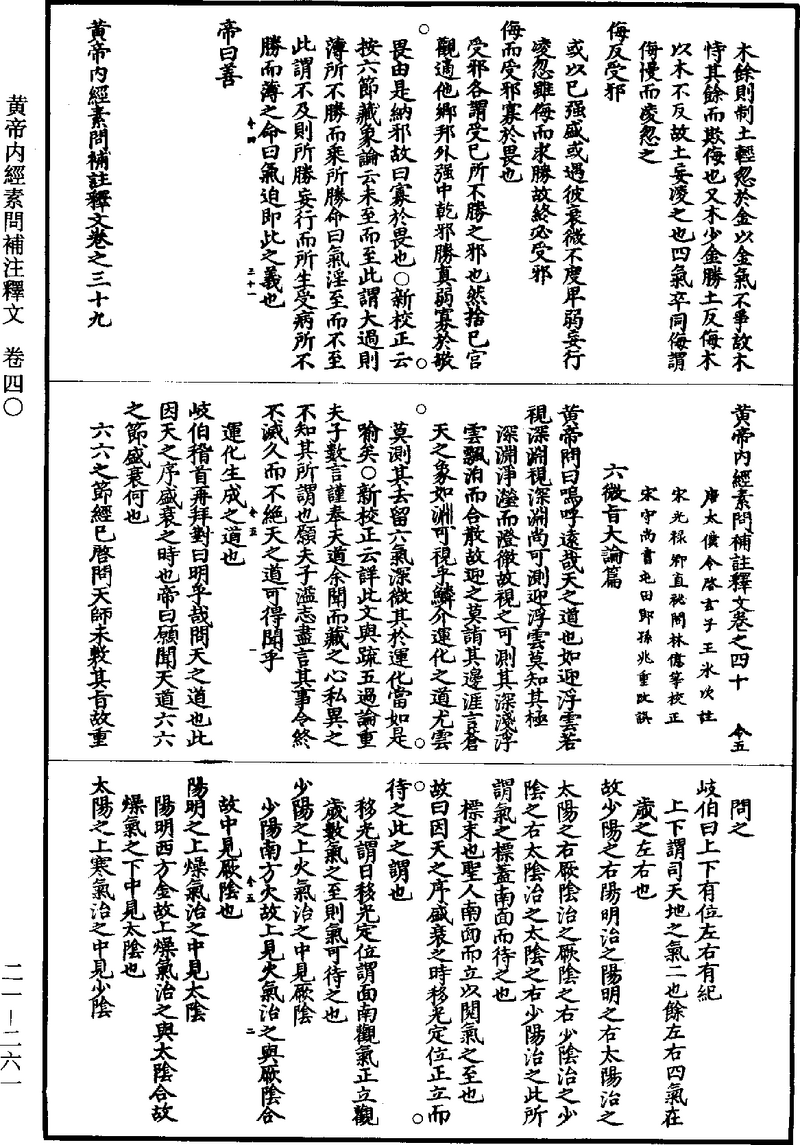 黃帝內經素問補注釋文　卷四〇
二一—二六一
木餘則制土輕忽於金以金氣不爭故木
恃其餘而欺侮也又木少金勝土反侮木
以木不及故土妄凌之也四氣卒同侮謂
侮慢而凌忽之
侮反受邪
或以己强盛或遇彼衰微不度卑弱妄行
凌忽雖侮而求勝故終必受邪
侮而受邪寡於畏也
受邪各謂受己所不勝之邪也然捨己宮
觀適他鄉邦外强中乾邪勝真弱寡於敬
畏由是納邪故曰寡於畏也○新校正云
按六節藏象論云未至而至此謂太過則
薄所不勝而乘所勝命曰氣淫至而不至
此謂不及則所勝妄行而所生受病所不
勝而薄之命曰氣迫即此之義也
令四　三十一
帝曰善
黃帝內經素問補註釋文卷之三十九
黃帝內經素問補註釋文卷之四十　令五
唐太僕令啓玄子王冰次註
宋光祿卿直祕閣林億等校正
宋守尚書屯田郎孫兆重改誤
六微旨大論篇
黃帝問曰嗚呼遠哉天之道也如迎浮雲若
視深淵視深淵尚可測迎浮雲莫知其極
深淵淨瀅而澄徹故視之可測其深淺浮
雲飄泊而合散故迎之莫詣其邊涯言蒼
天之象如淵可視乎鱗介運化之道尤雲
莫測其去留六氣深微其於運化當如是
喻矣○新校正云詳此文與疏五過論重
夫子數言謹奉天道余聞而藏之心私異之
不知其所謂也願夫子溢志盡言其事令終
不滅久而不絕天之道可得聞乎
令五　一
運化生成之道也
岐伯稽首再拜對曰明乎哉問天之道也此
因天之序盛衰之時也帝曰願聞天道六六
之節盛衰何也
六六之節經已啓問天師未敷其旨故重
問之
岐伯曰上下有位左右有紀
上下謂司天地之氣二也餘左右四氣在
歲之左右也
故少陽之右陽明治之陽明之右太陽治之
太陽之右厥陰治之厥陰之右少陰治之少
陰之右太陰治之太陰之右少陽治之此所
謂氣之標蓋南面而待之也
標末也聖人南面而立以閱氣之至也
故曰因天之序盛衰之時移光定位正立而
待之此之謂也
移光謂日移光定位謂面南觀氣正立觀
歲數氣之至則氣可待之也
少陽之上火氣治之中見厥陰
少陽南方火故上見火氣治之與厥陰合
令五　二
故中見厥陰也
陽明之上燥氣治之中見太陰
陽明西方金故上燥氣治之與太陰合故
燥氣之下中見太陰也
太陽之上寒氣治之中見少陰